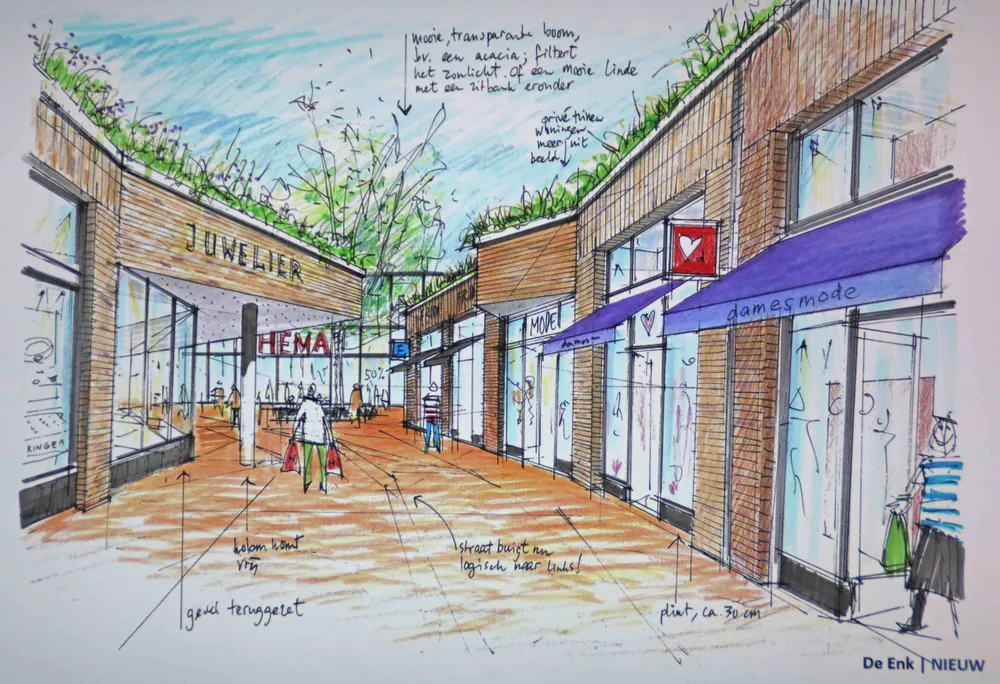 mooie, transparante boom,
bv. een acacia; filtert
het zonlicht. Of een mooie linde
met een zitbank eronder
privé tuinen
woningen
meer uit
beeld
JUWELIER
HEMA
50%
MODE
damesmode
RINGEN
kolom komt
vrij
straat buigt nu
logisch naar links!
gevel teruggezet
plint, ca. 30 cm
De Enk | NIEUW